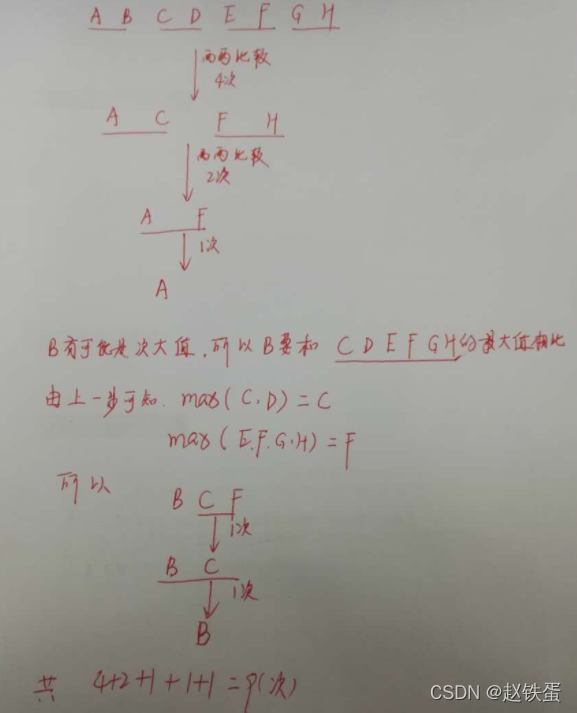 A B C D E F G H
两两比较
4次
A C F H
两两比较
2次
A F
1次
A
B有可能是次大值,可以B要和 C D E F G H的最大值相比
由上一步可知. max(C,D)=C
max(E.F.G.H)=F
可以
B C F
1次
B C
1次
B
共 4+2+1+1+1=9(次)
CSDN @赵铁蛋